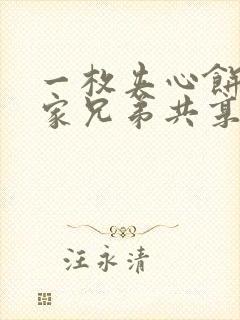 一枚夹心餅
家兄弟共享
汪永清